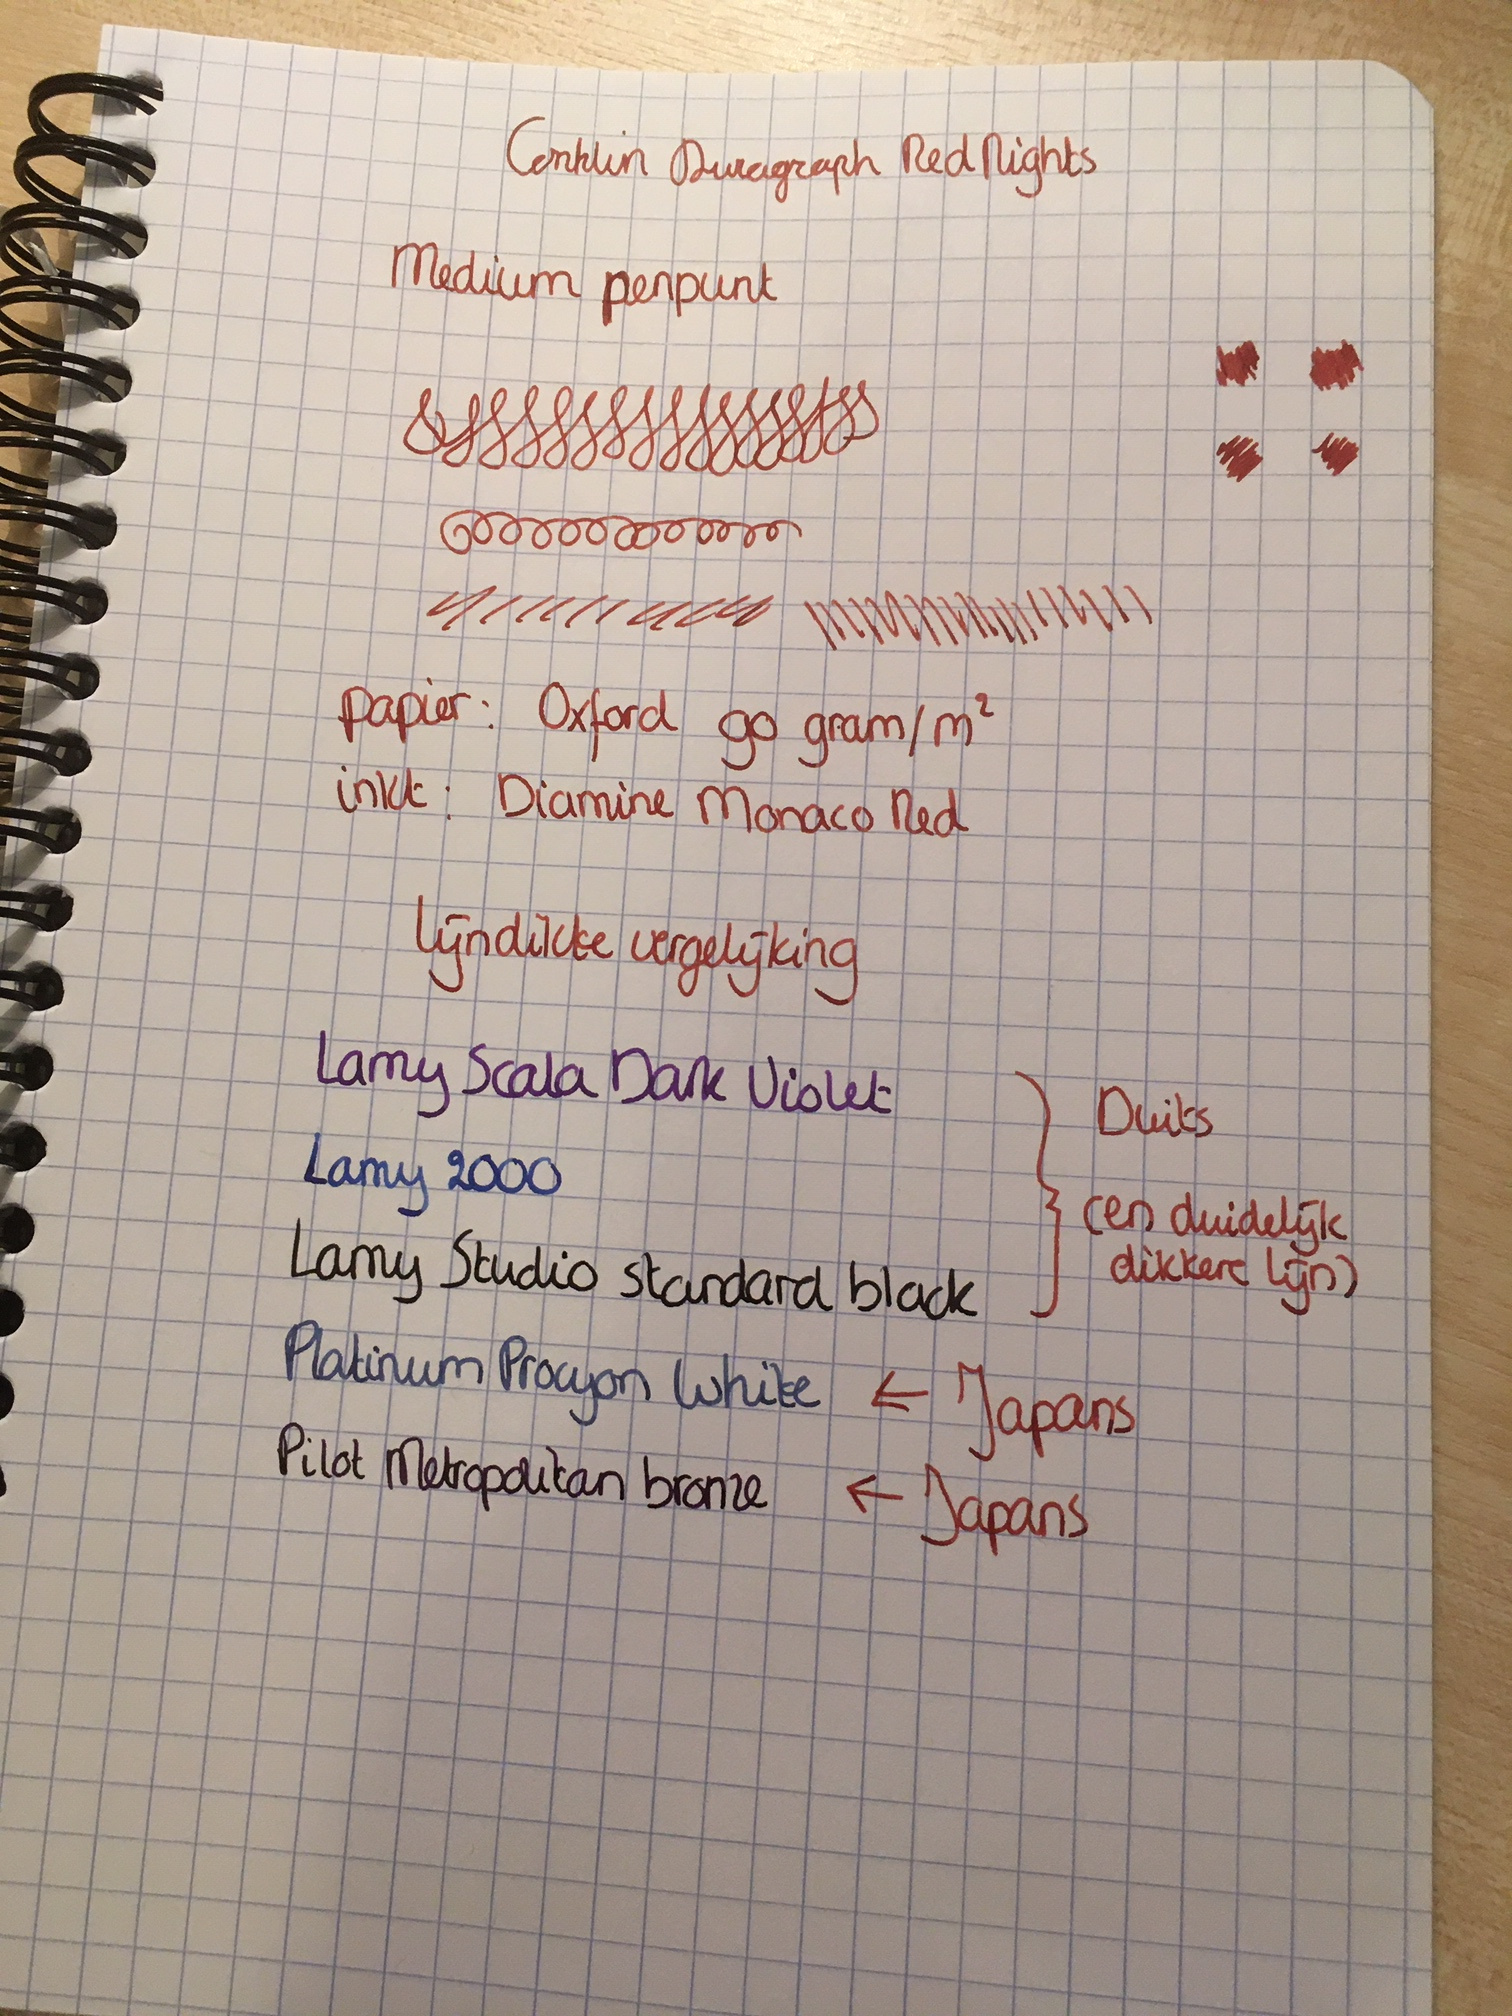 Conklin Duragraph Red Nights
Medium penpunt
papier: Oxford 90 gram/m²
inkt: Diamine Monaco Red
lijndikte vergelijking
Lamy Scala Dark Violet
Lamy 2000
Lamy Studio standard black
Duits
(en duidelijk
dikkere lijn)
Platinum Procyon White ← Japans
Pilot Metropolitan bronze ← Japans